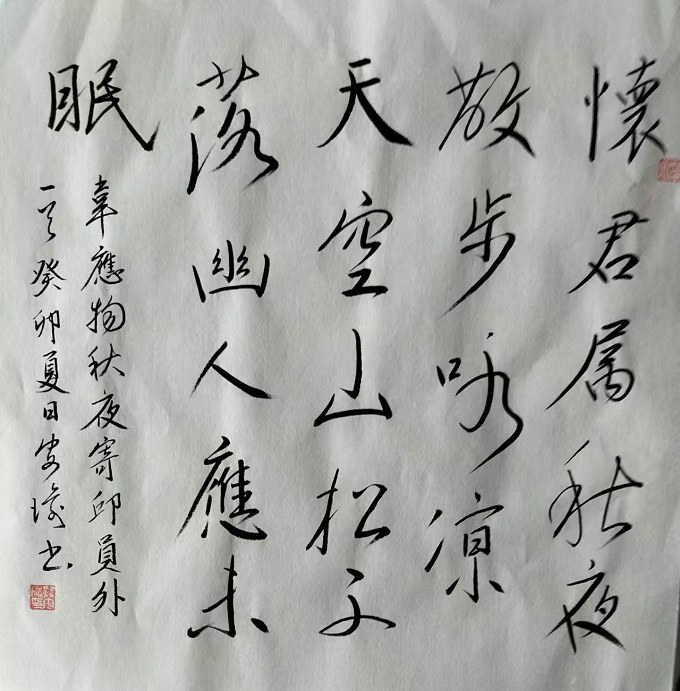 懷君属秋夜
散步咏涼
天空山松子
落幽人應未
眠
韋應物秋夜寄邱員外
一首癸卯夏日安 书